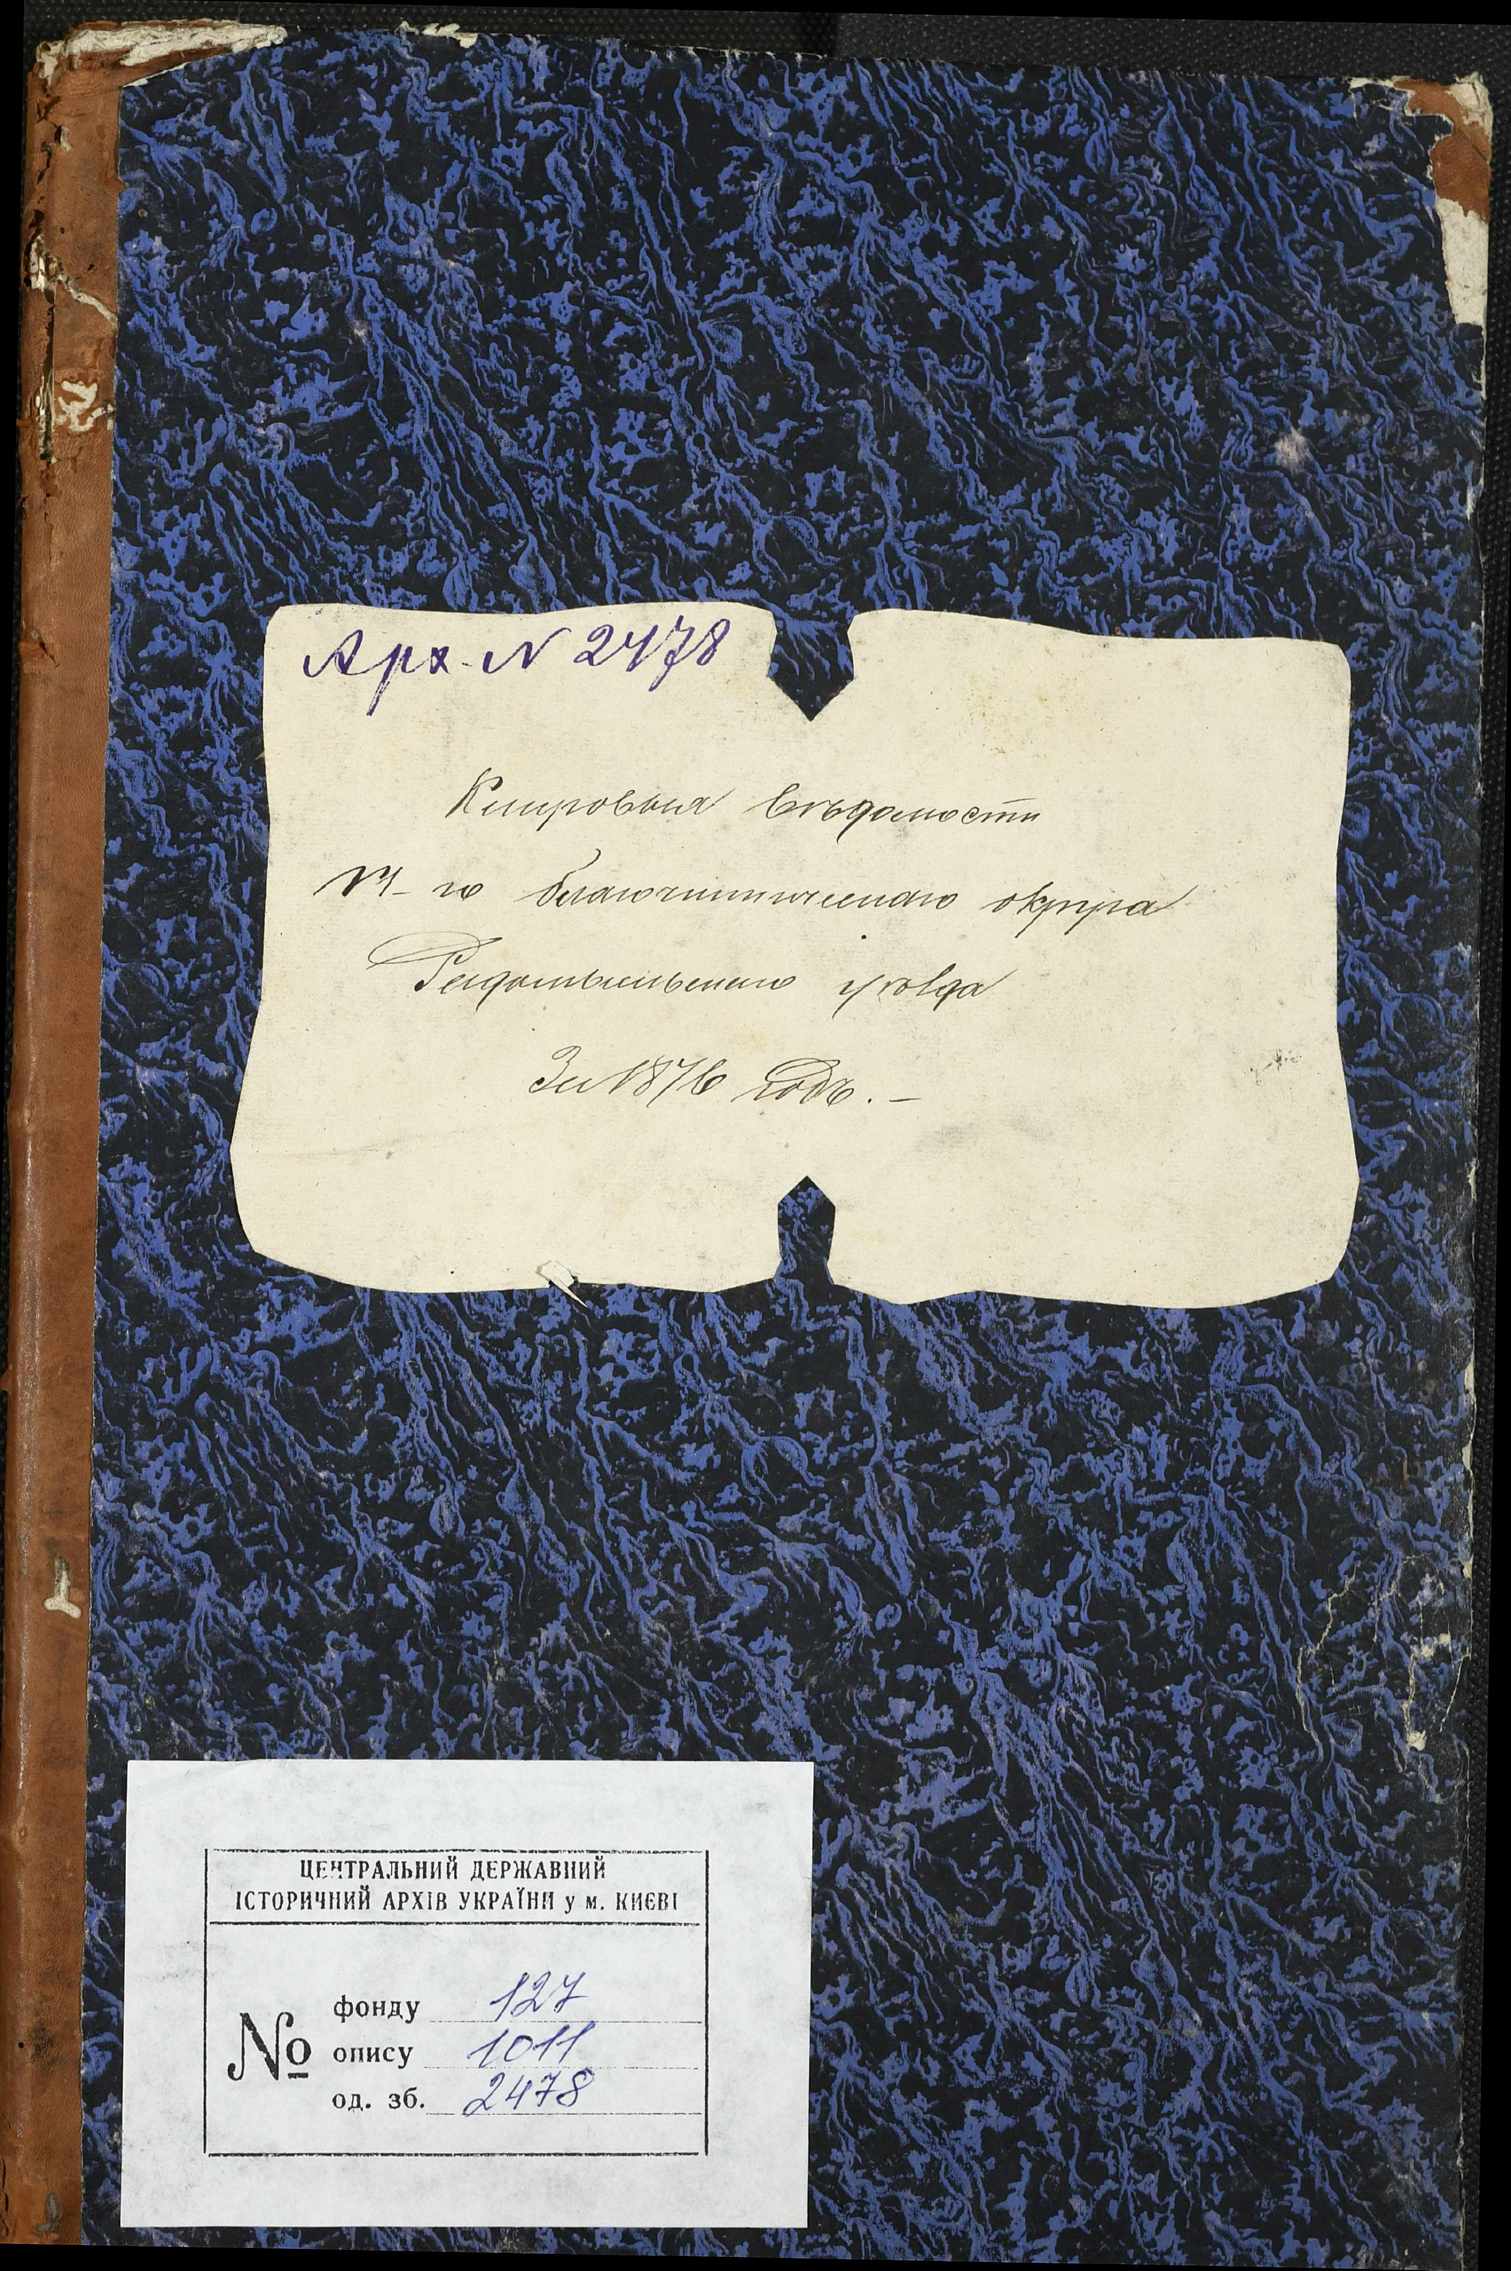 Арх. N 2478
Клировыя вѣдомости
VI-го благочинническаго округа
Радомысльскаго уѣзда
За 1876 годъ. –
ЦЕНТРАЛЬНИЙ ДЕРЖАВНИЙ
ІСТОРИЧНИЙ АРХІВ УКРАЇНИ у м. КИЄВІ
№
фонду 127
опису 1011
од. зб. 2478